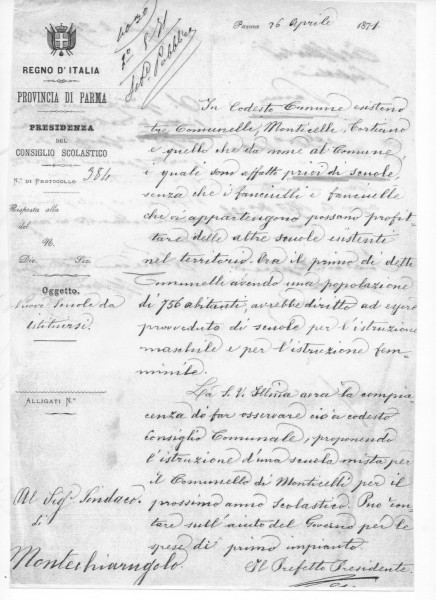 Parma 26 Aprile 1871
REGNO D'ITALIA
PROVINCIA DI PARMA
PRESIDENZA
DEL
CONSIGLIO SCOLASTICO
N.º DI PROTOCOLLO 384
Risposta alla
del
N.
Div. Sez.
Oggetto.
Nuove Scuole da
istituirsi.
ALLIGATI N.º
Al Sigr. Sindaco
di
Montechiarugolo.
In Codesto Comune esistono
tre Comunelli, Monticelli,
e quello che da nome al Comune
i quali sono affatto privi di scuole,
senza che i fanciulli e fanciulle
che vi appartengono possano profit-
tare delle altre scuole esistenti
nel territorio. Ora il primo di detti
Comunelli avendo una popolazione
di 756 abitanti, avrebbe diritto ad essere
provveduto di scuole per l'istruzione
maschile e per l'istruzione fem-
minile.
La S. V. Illma avrà la compia-
cenza di far osservare ciò a codesto
Consiglio Comunale, proponendo
l'istruzione d'una scuola mista per
il Comunello di Monticelli per il
prossimo anno scolastico. Può con-
tare sull'aiuto del Governo per le
spese di primo impianto.
Il Prefetto Presidente